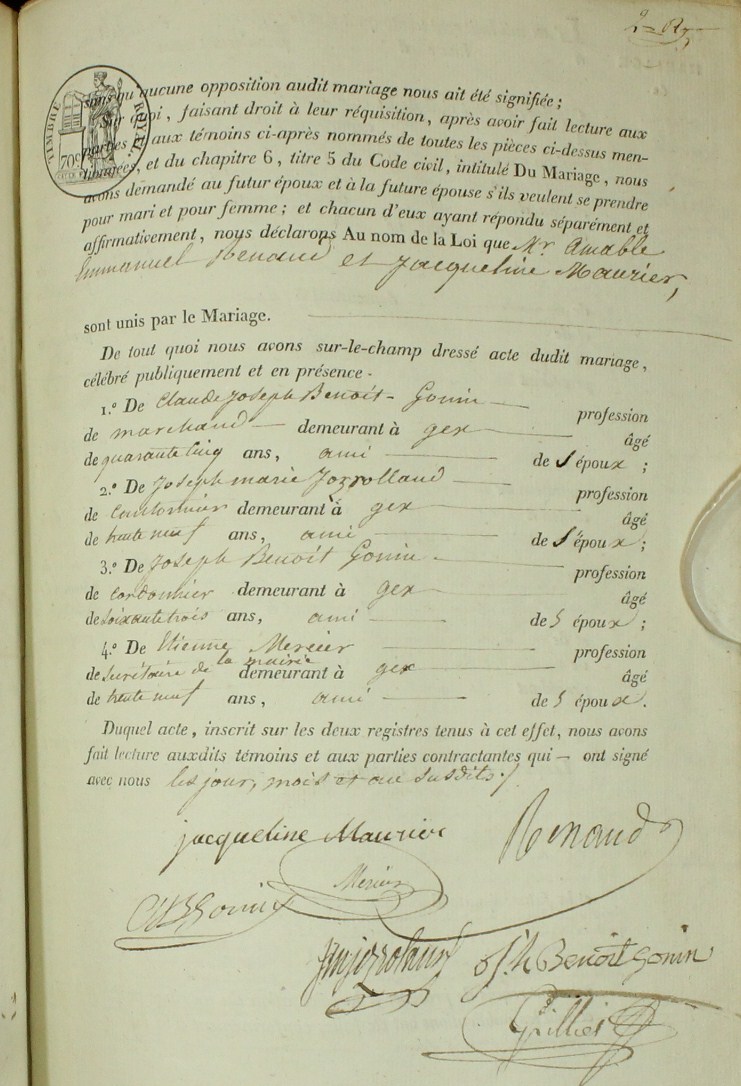 TIMBRE ROYAL
70c
sons qu'aucune opposition audit mariage nous ait été signifiée;
Sur quoi, faisant droit à leur réquisition, après avoir fait lecture aux
parties et aux témoins ci-après nommés de toutes les pièces ci-dessus men-
tionnées, et du chapitre 6, titre 5 du Code civil, intitulé Du Mariage, nous
avons demandé au futur époux et à la future épouse s'ils veulent se prendre
pour mari et pour femme; et chacun d'eux ayant répondu séparément et
affirmativement, nous déclarons Au nom de la Loi que Mr. Amable
Emmanuel Renaud et Jacqueline Maurier,
sont unis par le Mariage.
De tout quoi nous avons sur-le-champ dressé acte dudit mariage,
célébré publiquement et en présence -
1.º De Claude Joseph Benoit - Gonin — profession
de marchand — demeurant à gex — âgé
de quarante cinq ans, ami — de S époux;
2.º De Joseph marie Jozrolland — profession
de cantonnier demeurant à gex — âgé
de trente neuf ans, ami — de S époux;
3.º De Joseph Benoit Gonin — profession
de cordonnier demeurant à gex — âgé
de soixante trois ans, ami — de S époux;
4.º De Etienne Mercier — profession
de secrétaire de la mairie demeurant à gex — âgé
de trente neuf ans, ami — de S époux.
Duquel acte, inscrit sur les deux registres tenus à cet effet, nous avons
fait lecture auxdits témoins et aux parties contractantes qui — ont signé
avec nous les jour, mois et an susdits./
jacqueline Maurier Renaud
Mercier
CJB Gonin
Jmjozroland jh Benoit Gonin